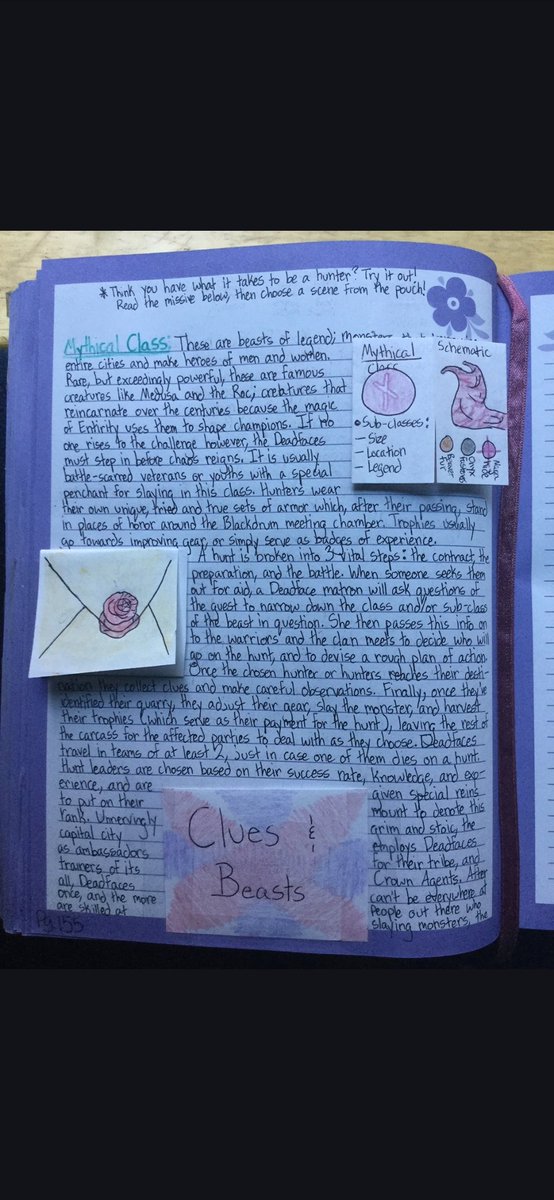 * Think you have what it takes to be a hunter? Try it out!
Read the missive below, then choose a scene from the pouch!
Mythical Class: These are beasts of legend; monsters
entire cities and make heroes of men and women.
Rare, but exceedingly powerful, these are famous
creatures like Medusa and the Roc; creatures that
reincarnate over the centuries because the magic
of Entirity uses them to shape champions. If no
one rises to the challenge however, the Deadfaces
must step in before chaos reigns. It is usually
battle-scarred veterans or youths with a special
penchant for slaying in this class. Hunters wear
their own unique, tried and true sets of armor which, after their passing, stand
in places of honor around the Blackdrum meeting chamber. Trophies usually
go towards improving gear, or simply serve as badges of experience.
Mythical
Class
• Sub-classes:
- Size
- Location
- Legend
Schematic
Brown
Fur
Onyx
Hide
A hunt is broken into 3 vital steps: the contract, the
preparation, and the battle. When someone seeks them
out for aid, a Deadface matron will ask questions of
the guest to narrow down the class and/or sub-class
of the beast in question. She then passes this info on
to the warriors and the clan meets to decide who will
go on the hunt, and to devise a rough plan of action.
Once the chosen hunter or hunters reaches their desti-
nation they collect clues and make careful observations. Finally, once they've
identified their quarry, they adjust their gear, slay the monster, and harvest
their trophies (which serve as their payment for the hunt), leaving the rest of
the carcass for the affected parties to deal with as they choose. Deadfaces
travel in teams of at least 2, just in case one of them dies on a hunt.
Hunt leaders are chosen based on their success rate, knowledge, and exp-
erience, and are given special reins
to put on their mount to denote this
rank. Unnervingly grim and stoic, the
capital city employs Deadfaces
as ambassadors for their tribe, and
trainers of its Crown Agents. After
all, Deadfaces can't be everywhere at
once, and the more people out there who
are skilled at slaying monsters, the
Clues &
Beasts
Pg. 155